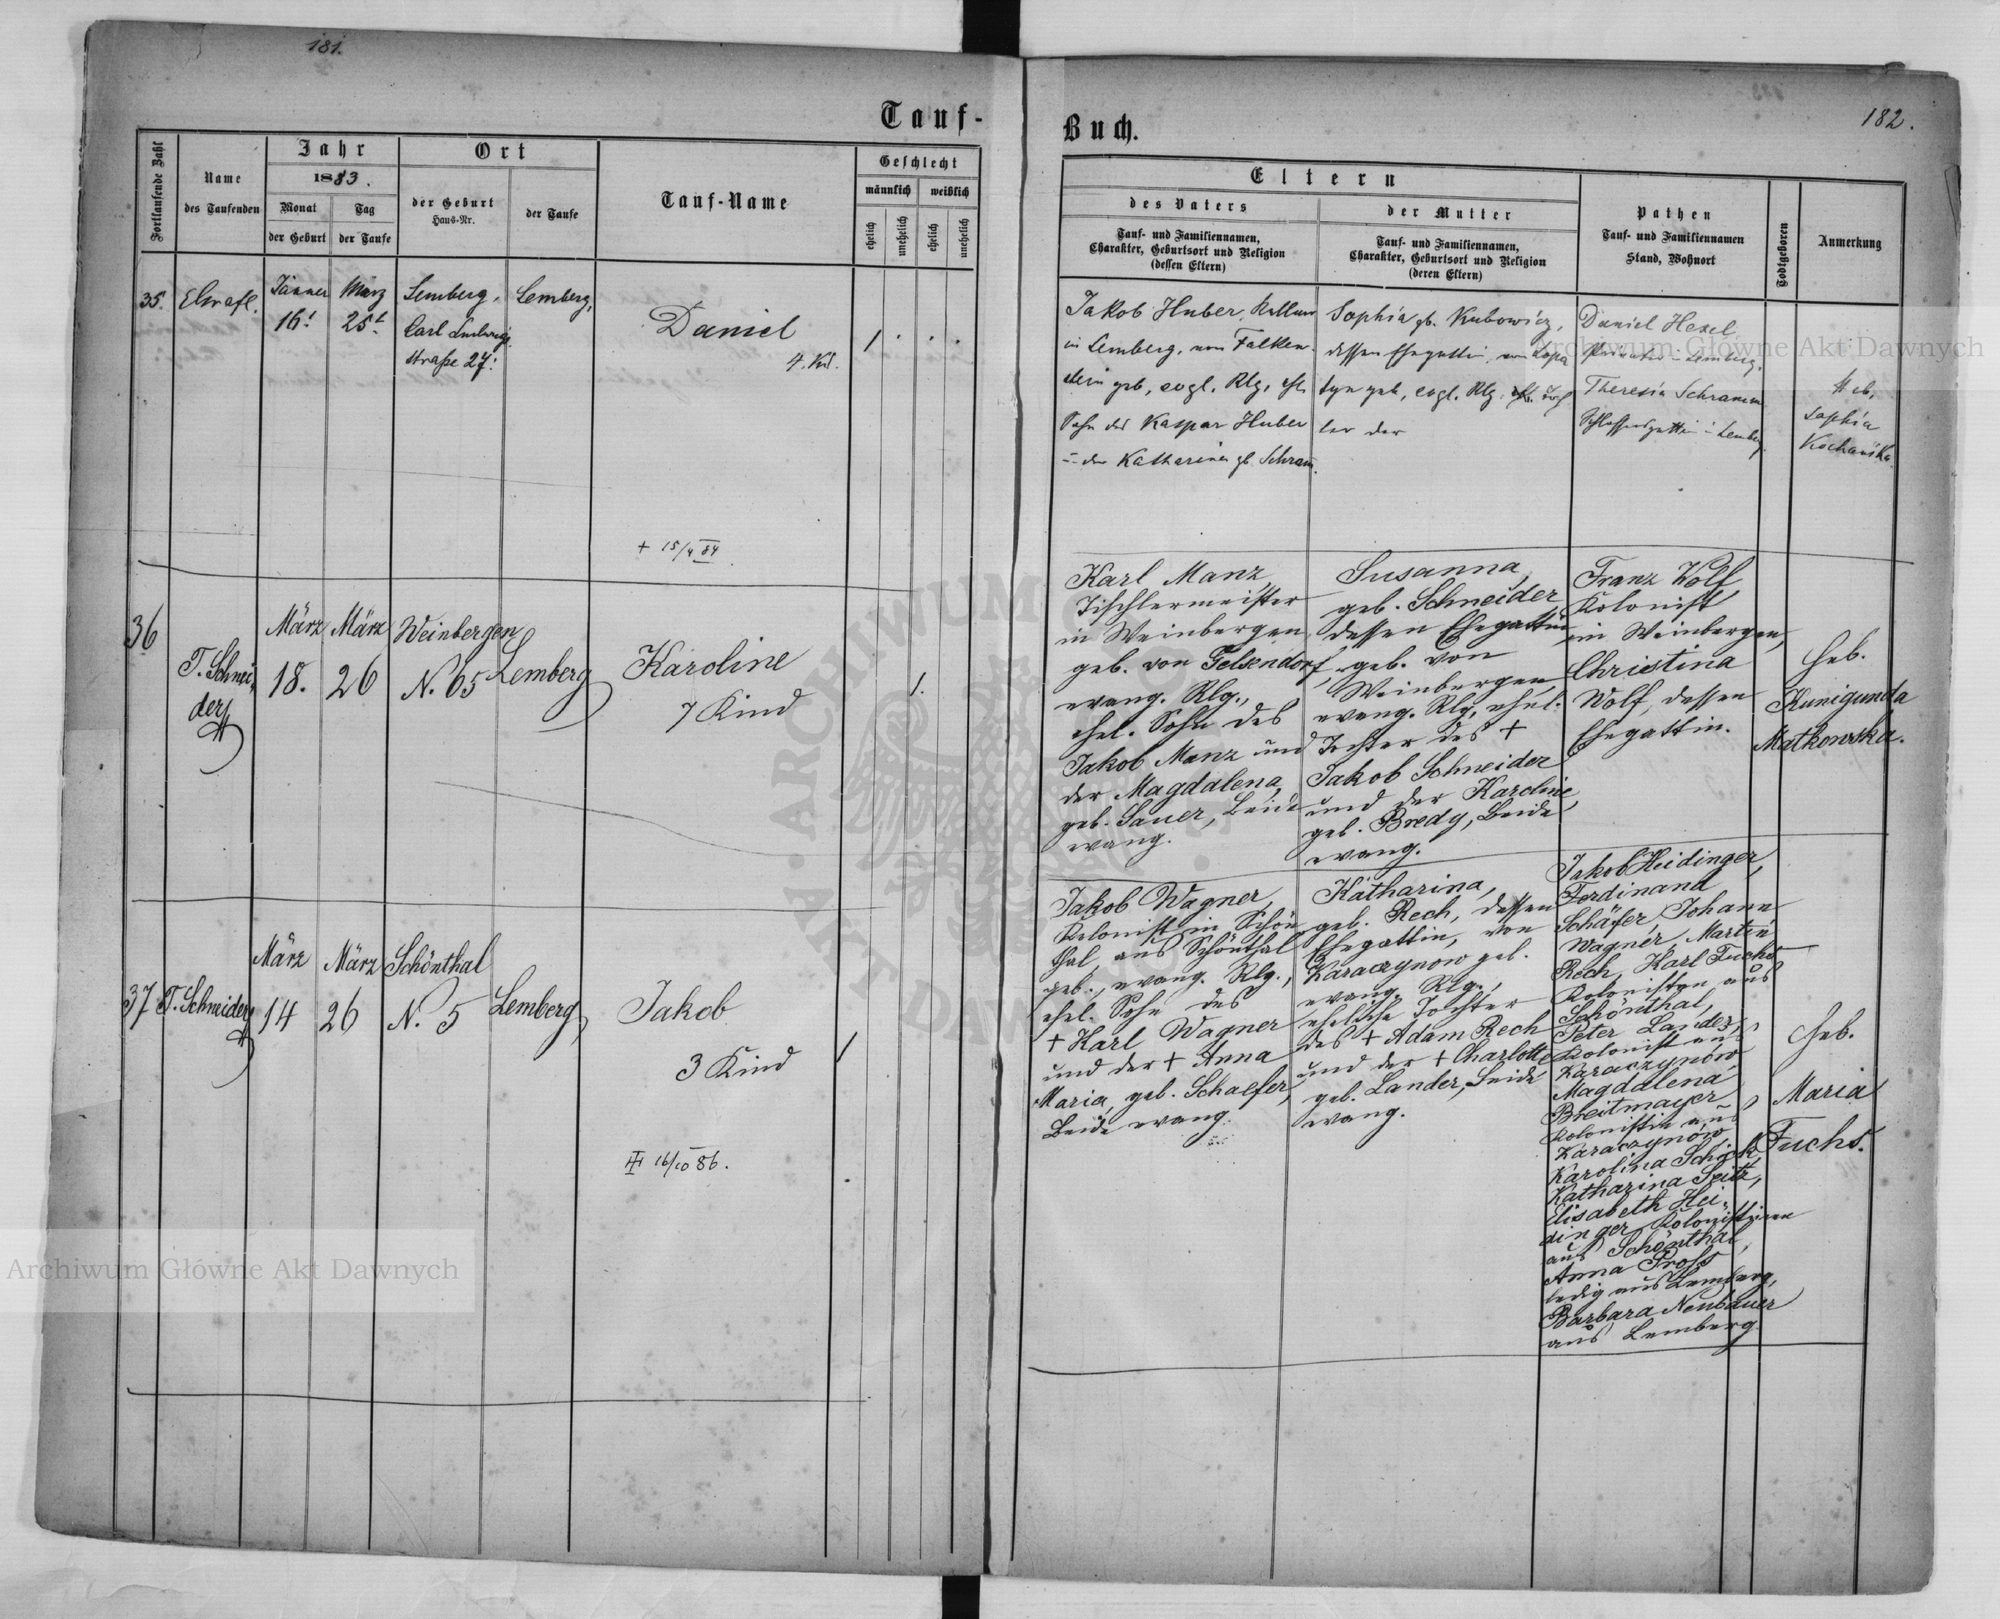 181.
Tauf-
Fortlaufende Zahl
Name
des Taufenden
Jahr
1883.
Monat
der Geburt
Tag
der Taufe
Ort
der Geburt
Haus-Nr.
der Taufe
Tauf-Name
Geschlecht
männlich
weiblich
ehelich
unehelich
ehelich
unehelich
35.
Jänner
16t
März
25t
Lemberg,
Carl Ludwigs
straße 27.
Lemberg,
Daniel
4. Kd.
1
+ 15/4 84
36
T. Schnei-
der
März
18.
März
26
Weinbergen
N. 65
Lemberg
Karoline
7 Kind
1.
37
T. Schneider
März
14
März
26
Schönthal
N. 5
Lemberg
Jakob
3 Kind
1
16/10 86.
182.
Buch.
Eltern
des Vaters
Tauf- und Familiennamen,
Charakter, Geburtsort und Religion
(dessen Eltern)
der Mutter
Tauf- und Familiennamen,
Charakter, Geburtsort und Religion
(deren Eltern)
Pathen
Tauf- und Familiennamen
Stand, Wohnort
Todtgeboren
Anmerkung
Jakob Huber, Kellner
in Lemberg, von Falken-
stein geb, evgl. Rlg, ehl.
Sohn des Kaspar Huber
u. der Katharina gb. Schram.
Sophia gb. Kubowicz,
dessen Ehegattin, von
geb, evgl. Rlg. ehl. Toch
ter der
Daniel Hexel
Privatier in Lemberg.
Theresia Schramm
Schlossersgattin in Lemberg
Heb.
Sophia
Kochańska.
Karl Manz,
Tischlermeister
in Weinbergen,
geb. von Felsendorf,
evang. Rlg.,
ehel. Sohn des
Jakob Manz und
der Magdalena,
geb. Sauer, beide
evang.
Susanna,
geb. Schneider
dessen Ehegattin
geb. von
Weinbergen,
evang. Rlg, ehel.
Tochter des +
Jakob Schneider
und der Karoline,
geb. Bredy, beide
evang.
Franz Wolf
Kolonist
in Weinbergen,
Christina
Wolf, dessen
Ehegattin.
Heb.
Kunigunda
Matkowska.
Jakob Wagner,
Kolonist in Schön-
thal, aus Schönthal
geb., evang. Rlg.,
ehel. Sohn des
+ Karl Wagner
und der + Anna
Maria, geb. Schaefer,
beide evang.
Katharina,
geb. Rech, dessen
Ehegattin, von
Karaczynow geb.
evang. Rlg.,
eheliche Tochter
des + Adam Rech
und der + Charlotte
geb. Lander, beide
evang.
Jakob Heidinger,
Ferdinand
Schäfer, Johann
Wagner, Martin
Rech, Karl Fuchs
Kolonisten aus
Schönthal,
Peter Lander,
Kolonist aus
Karaczynów
Magdalena
Breitmayer
Kolonistin aus
Karaczynów
Karolina Schick
Katharina Seitz,
Elisabeth Hei-
dinger Kolonistinen
aus Schönthal,
Anna Pross
ledig aus Lemberg,
Barbara Neubauer
aus Lemberg.
Heb.
Maria
Fuchs.
Archiwum Główne Akt Dawnych
Archiwum Główne Akt Dawnych